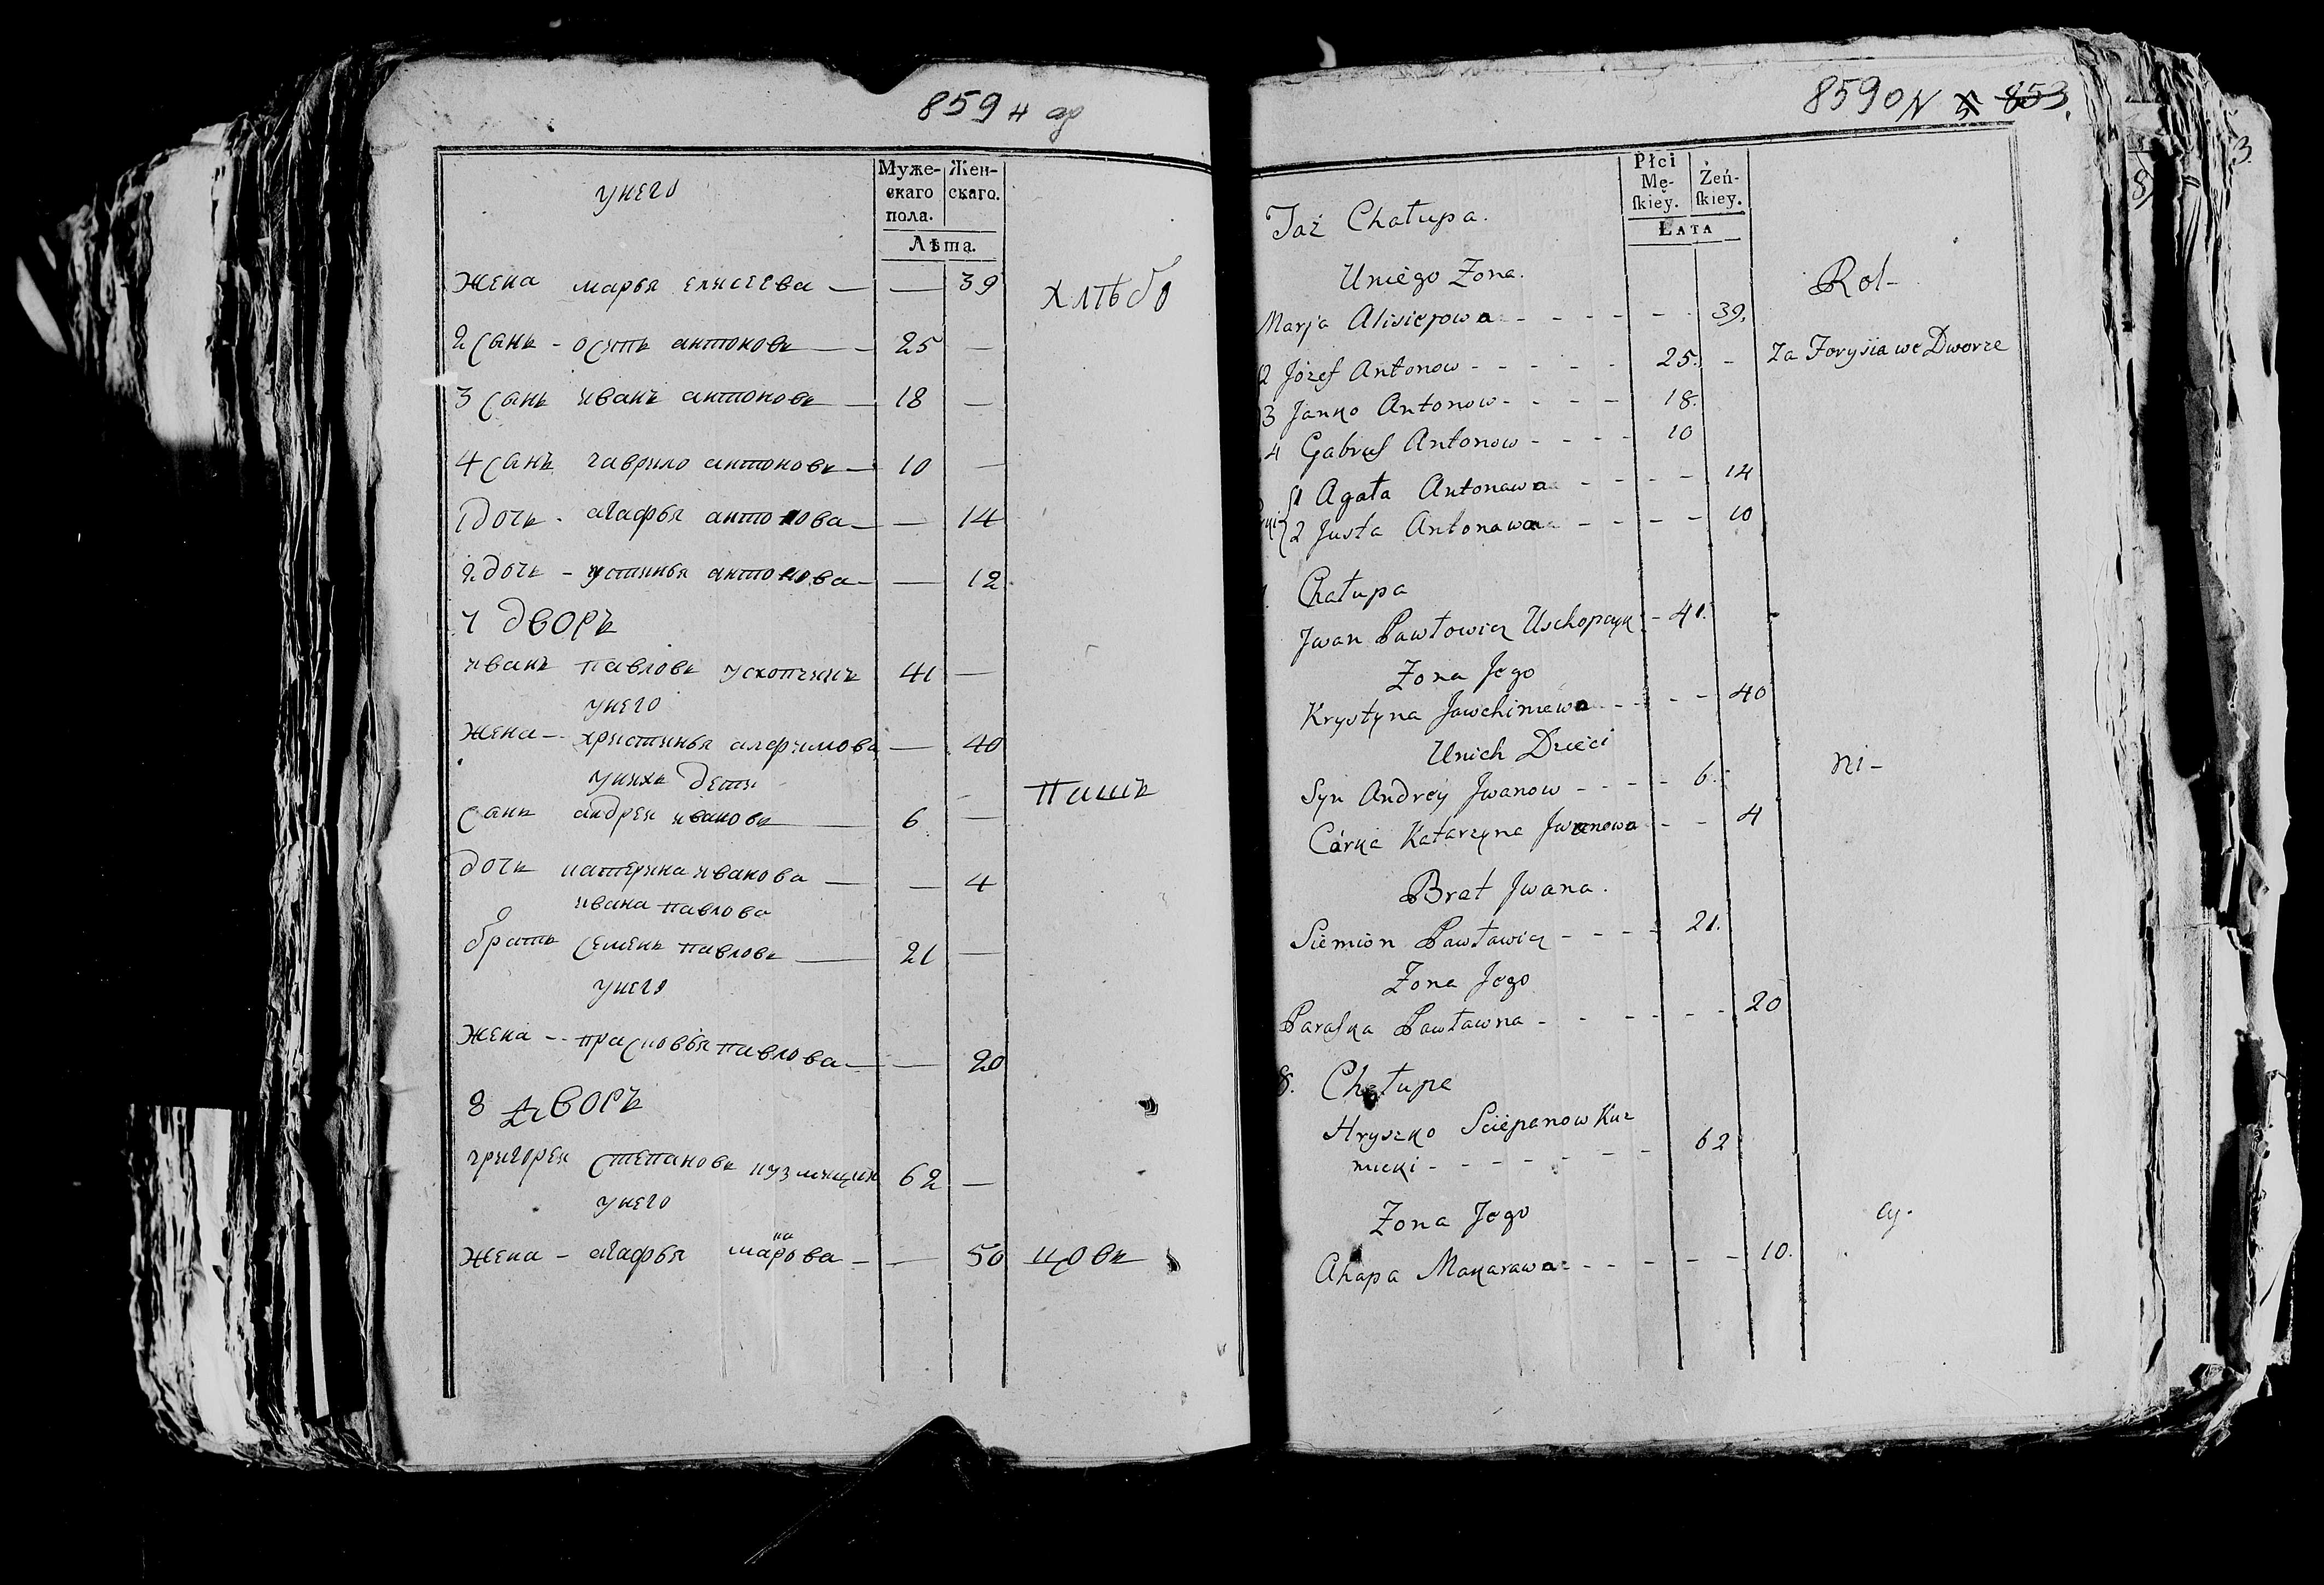 859 н
унего
Муже-
скаго
пола.
Жен-
скаго.
Лѣта.
жена марья елисеева — — 39
хлѣбо
2 сынъ - осипъ антоновъ — 25 —
3 сынъ иванъ антоновъ — 18 —
4 сынъ гаврило антоновъ — 10 —
1 дочь - агафья антонова — — 14
2 дочь - устинья антонова — — 12
7 дворъ
иванъ павловъ ускопчикъ 41 —
унего
жена - христинья алефимова — 40
унихъ дети
пашъ
сынъ андреи ивановъ — 6 —
дочь катерина иванова — — 4
ивана павлова
братъ семенъ павловъ — 21 —
унего
жена - прасковья павлова — — 20
8 дворъ
григореи степановъ кузмицкик 62 —
унего
жена - агафья макарова — — 50
цовъ
859 ON 853.
Płci
Mę-
ſkiey.
Żeń-
ſkiey.
Lata
Taż Chałupa.
Uniego Żona.
Rol-
Marja Alisiejowa - - - - - 39.
2 Józef Antonow - - - - - 25. -
Za Forysia we Dworze
3 Janko Antonow - - - - 18.
4 Gabruś Antonow - - - - 10
1 Agata Antonawa - - - - 14
2 Justa Antonawa - - - - 10
Chałupa
Jwan Pawłowicz Uschopczyk - 41.
Żona Jego
Krystyna Jawchimewa - - - - 40
Unich Dzieci
ni-
Syn Andrey Jwanow - - - - 6.
Córka Katarzyna Jwanowa - - 4
Brat Jwana.
Siemion Pawławicz - - - - 21.
Żona Jego
Paraska Pawławna - - - - - 20
8. Chałupa
Hryszko Sciepanow Kuz
micki - - - - - - - 62
Żona Jego
cy.
Ahapa Makarawa - - - - - 10.